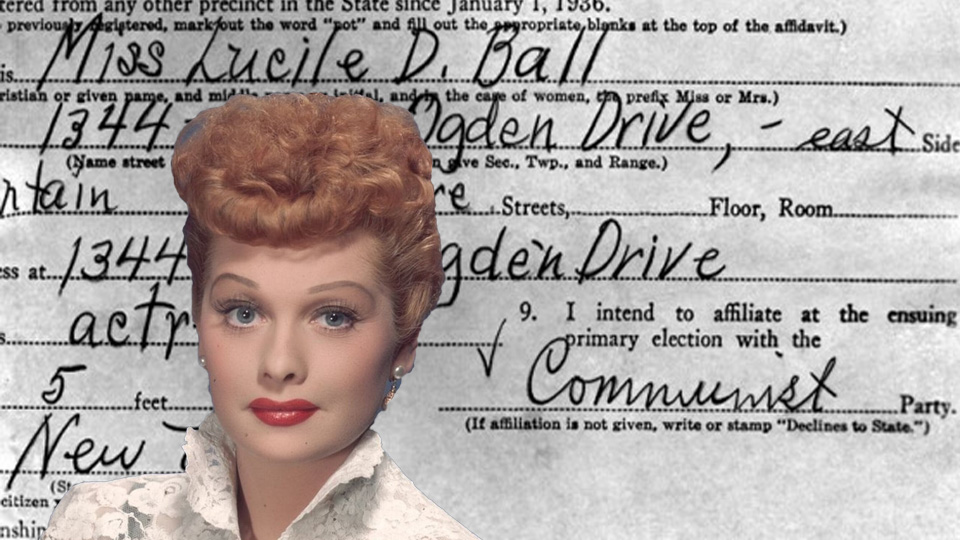 tered from any other precinct in the State since January 1, 1936.
previously registered, mark out the word "not" and fill out the appropriate blanks at the top of the affidavit.)
is Miss Lucile D. Ball
ristian or given name, and middle name or initial, and in the case of women, the prefix Miss or Mrs.)
1344 Ogden Drive, - east Side
(Name street n give Sec., Twp., and Range.)
ntain re Streets, Floor, Room
ss at 1344 gden Drive
s actr
9. I intend to affiliate at the ensuing
primary election with the
✓ Communist Party.
(If affiliation is not given, write or stamp "Declines to State.")
5 feet
New
(St
citizen
nship